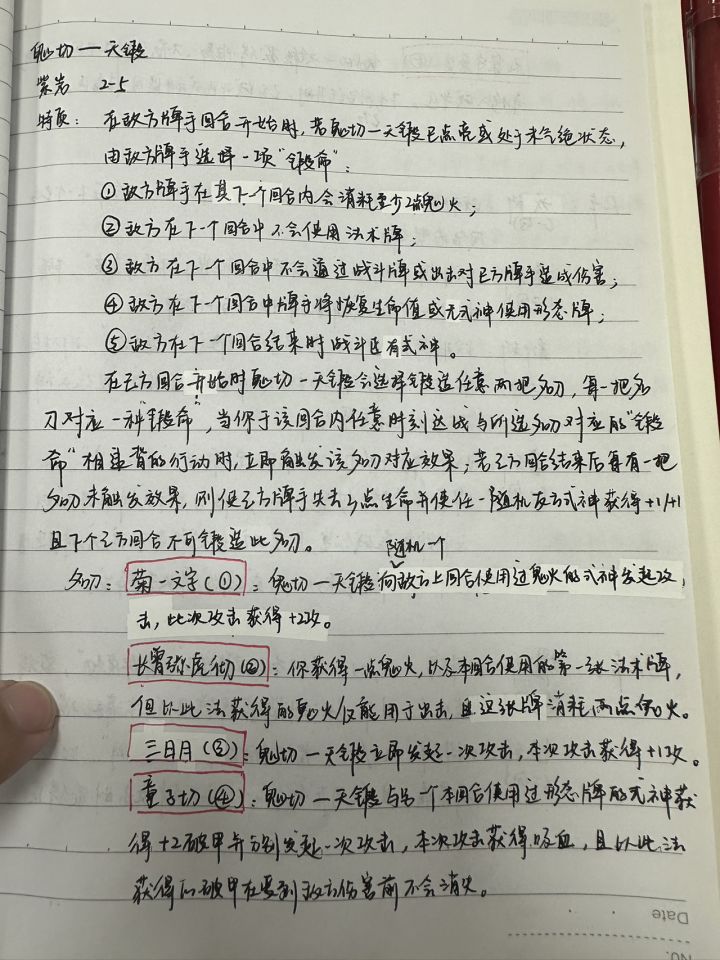 鬼切—天锻
紫岩 2-5
特质: 在敌方牌手回合开始时,若鬼切—天锻已点亮或处于未气绝状态,
由敌方牌手选择一项"锻命":
①敌方牌手在其下个回合内会消耗至少2点鬼火;
②敌方在下一个回合中不会使用法术牌;
③敌方在下一个回合中不会通过战斗牌或出击对己方牌手造成伤害;
④敌方在下一个回合中牌手将恢复生命值或无式神使用形态牌;
⑤敌方在下一个回合结束时战斗区有式神。
在己方回合开始时鬼切—天锻会选择锻造任意两把名刀,每一把名
刀对应一种"锻命",当你于该回合内任意时刻达成与所选名刀对应的"锻
命"相违背的行动时,立即触发该名刀对应效果;若己方回合结束后每有一把
名刀未触发效果,则使己方牌手失去2点生命并使任一随机友方式神获得+1/+1
且下个己方回合不可锻造此名刀。
随机一个
名刀: 菊一文字(①):鬼切—天锻向敌方上回合使用过鬼火的式神发起攻
击,此次攻击获得+2攻。
长曾弥虎彻(②):你获得一点鬼火,以及本回合使用的第一张法术牌,
但以此法获得的鬼火仅能用于出击,且这张牌消耗两点鬼火。
三日月(③):鬼切—天锻立即发起一次攻击,本次攻击获得+1攻。
童子切(④):鬼切—天锻与另一个本回合使用过形态牌的式神获
得+2破甲并分别发起一次攻击,本次攻击获得吸血,且以此法
获得的破甲在受到敌方伤害前不会消失。
Date
No.